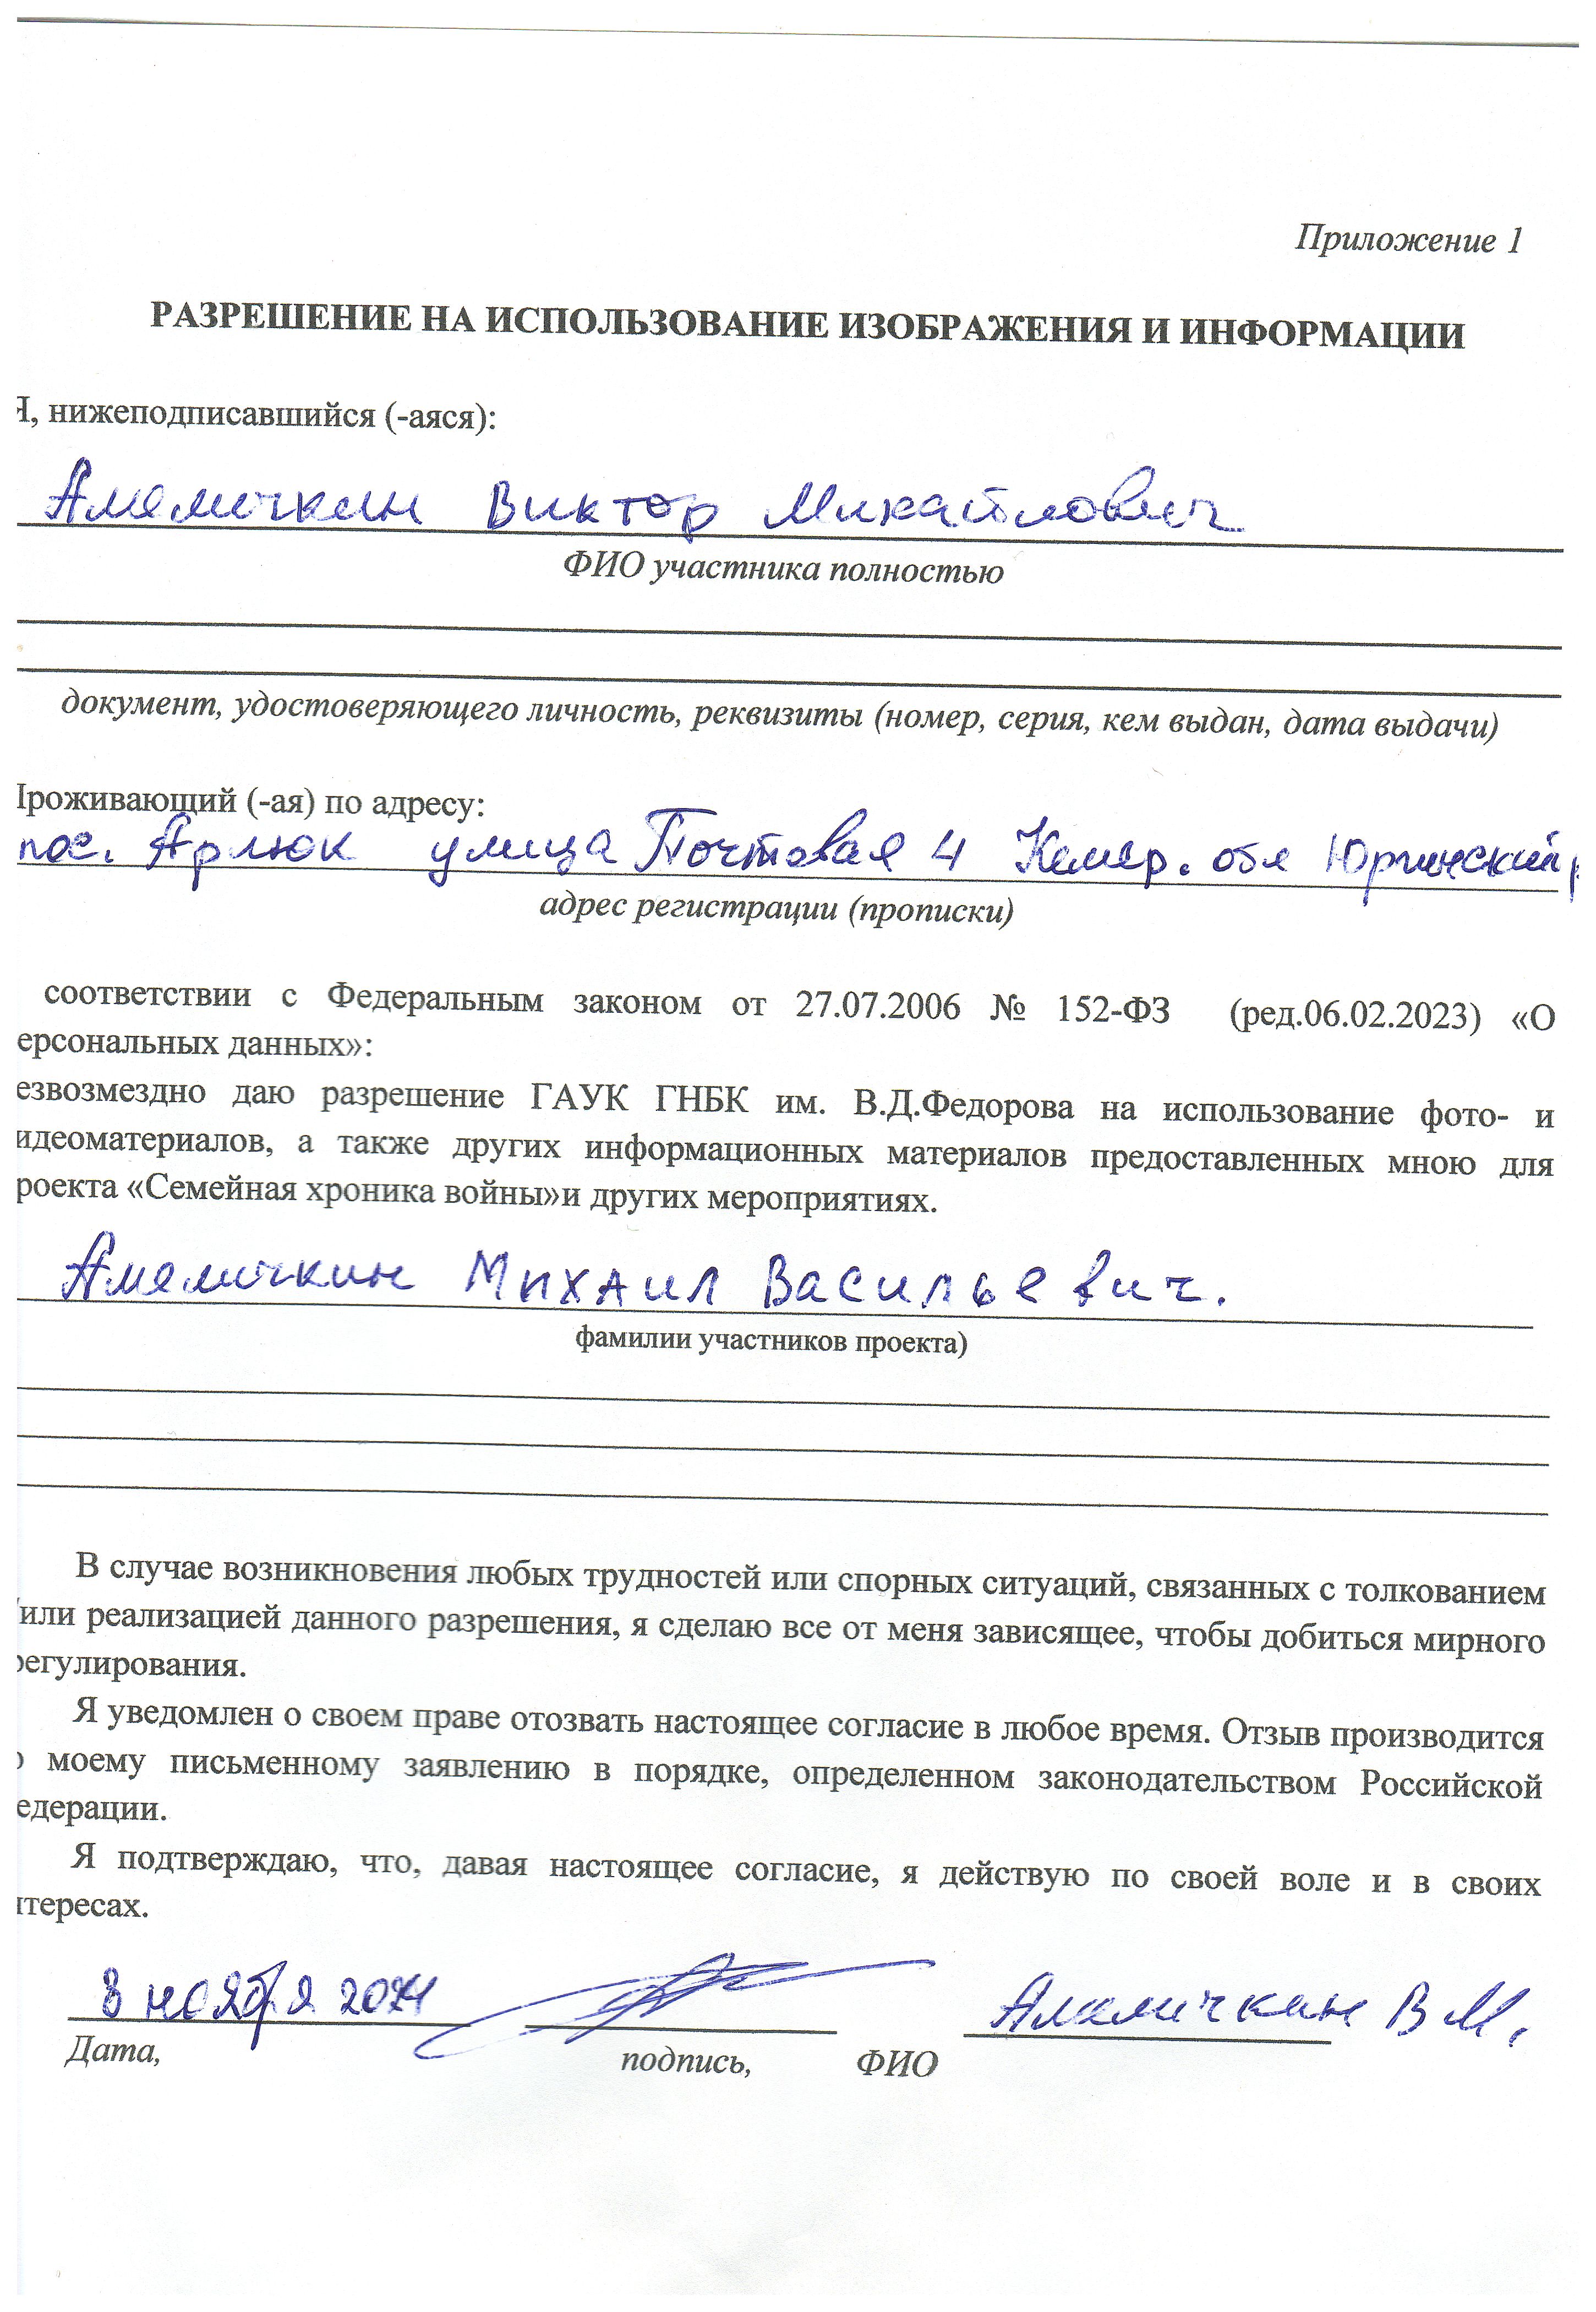 Приложение 1
РАЗРЕШЕНИЕ НА ИСПОЛЬЗОВАНИЕ ИЗОБРАЖЕНИЯ И ИНФОРМАЦИИ
Я, нижеподписавшийся (-аяся):
Амемичкин Виктор Михайлович
ФИО участника полностью
документ, удостоверяющего личность, реквизиты (номер, серия, кем выдан, дата выдачи)
Проживающий (-ая) по адресу:
пос. Арлюк улица Почтовая 4 Кемер. обл Юргинский р
адрес регистрации (прописки)
соответствии с Федеральным законом от 27.07.2006 № 152-ФЗ (ред.06.02.2023) «О
ерсональных данных»:
езвозмездно даю разрешение ГАУК ГНБК им. В.Д.Федорова на использование фото- и
идеоматериалов, а также других информационных материалов предоставленных мною для
роекта «Семейная хроника войны»и других мероприятиях.
Амемичкин Михаил Васильевич.
фамилии участников проекта)
В случае возникновения любых трудностей или спорных ситуаций, связанных с толкованием
/или реализацией данного разрешения, я сделаю все от меня зависящее, чтобы добиться мирного
регулирования.
Я уведомлен о своем праве отозвать настоящее согласие в любое время. Отзыв производится
о моему письменному заявлению в порядке, определенном законодательством Российской
едерации.
Я подтверждаю, что, давая настоящее согласие, я действую по своей воле и в своих
тересах.
8 ноября 2024 Амемичкин В М.
Дата, подпись, ФИО